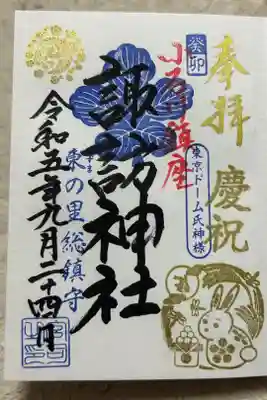 奉拝　慶祝
癸卯
東京ドーム氏神様
小石川鎮座
諏訪神社
東の里総鎮守
令和五年九月二十四日